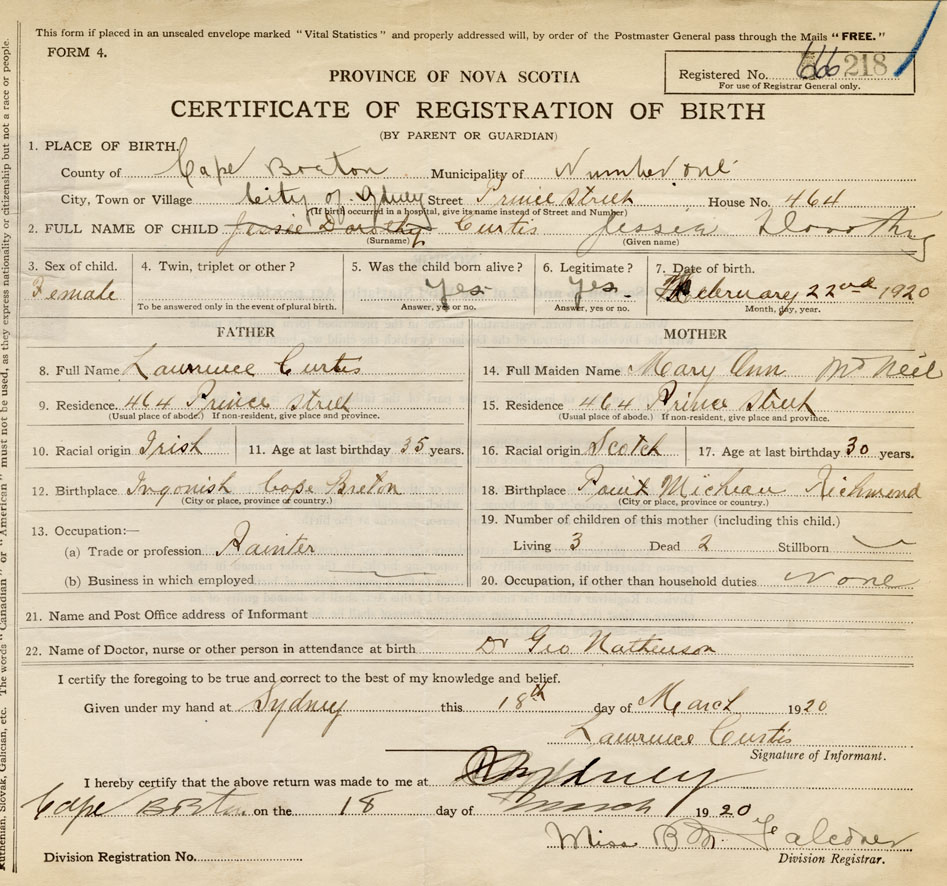 This form if placed in an unsealed envelope marked "Vital Statistics" and properly addressed will, by order of the Postmaster General pass through the Mails "FREE."
FORM 4.
Registered No. 218
For use of Registrar General only.
PROVINCE OF NOVA SCOTIA
CERTIFICATE OF REGISTRATION OF BIRTH
(BY PARENT OR GUARDIAN)
1. PLACE OF BIRTH.
County of Cape Breton Municipality of Number one
City, Town or Village City of Sydney Street Prince Street House No. 464
(If birth occurred in a hospital, give its name instead of Street and Number)
2. FULL NAME OF CHILD Jessie Dorothy Curtis Jessie Dorothy
(Surname) (Given name)
3. Sex of child. 4. Twin, triplet or other? 5. Was the child born alive? 6. Legitimate? 7. Date of birth.
Female Yes Yes. February 22nd 1920
To be answered only in the event of plural birth. Answer, yes or no. Answer, yes or no. Month, day, year.
FATHER MOTHER
8. Full Name Lawrence Curtis 14. Full Maiden Name Mary Ann McNeil
9. Residence 464 Prince Street 15. Residence 464 Prince Street
(Usual place of abode.) If non-resident, give place and province. (Usual place of abode.) If non-resident, give place and province.
10. Racial origin Irish 11. Age at last birthday 35 years. 16. Racial origin Scotch 17. Age at last birthday 30 years.
12. Birthplace Ingonish Cape Breton 18. Birthplace Point Micheau Richmond
(City or place, province or country.) (City or place, province or country.)
13. Occupation:— 19. Number of children of this mother (including this child.)
(a) Trade or profession Painter Living 3 Dead 2 Stillborn
(b) Business in which employed 20. Occupation, if other than household duties None
21. Name and Post Office address of Informant
22. Name of Doctor, nurse or other person in attendance at birth Dr Geo Nathenson
I certify the foregoing to be true and correct to the best of my knowledge and belief.
Given under my hand at Sydney this 18th day of March 1920
Lawrence Curtis
Signature of Informant.
I hereby certify that the above return was made to me at Sydney
Cape Breton on the 18 day of March 1920
Miss B M Falconer
Division Registrar.
Division Registration No.
Ruthenian, Slovak, Galician, etc. The words "Canadian" or "American" must not be used, as they express nationality or citizenship but not a race or people.